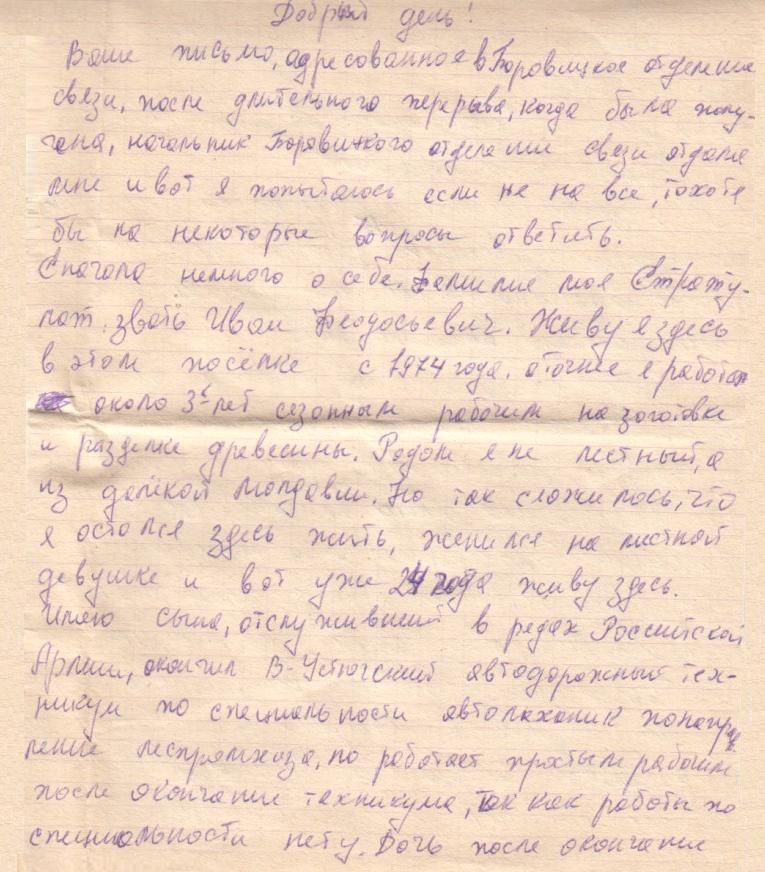 Добрый день!
Ваше письмо, адресованное в Боровицкое отделение
связи, после длительного перерыва, когда была полу-
чена, начальник Боровицкого отделение связи отдала
мне и вот я попытаюсь если не на все, то хотя
бы на некоторые вопросы ответить.
Сначала немного о себе. Фамилия моя Страту-
лат, звать Иван Феодосьевич. Живу я здесь
в этом посёлке с 1974 года. а точнее я работал
около 3х лет сезонным рабочим на заготовке
и разделке древесины. Родом я не местный, а
из далёкой Молдавии. Но так сложилось, что
я остался здесь жить, женился на мистной
девушке и вот уже 24 года живу здесь.
Имею сына, отслуживший в рядах Российской
Армии, окончил В-Устюгский автодорожный тех-
никум по специальности автомеханик по напра
ление леспромхоза, но работает простым рабочим
после окончание техникума, так как работы по
специальности нету. Дочь после окончание